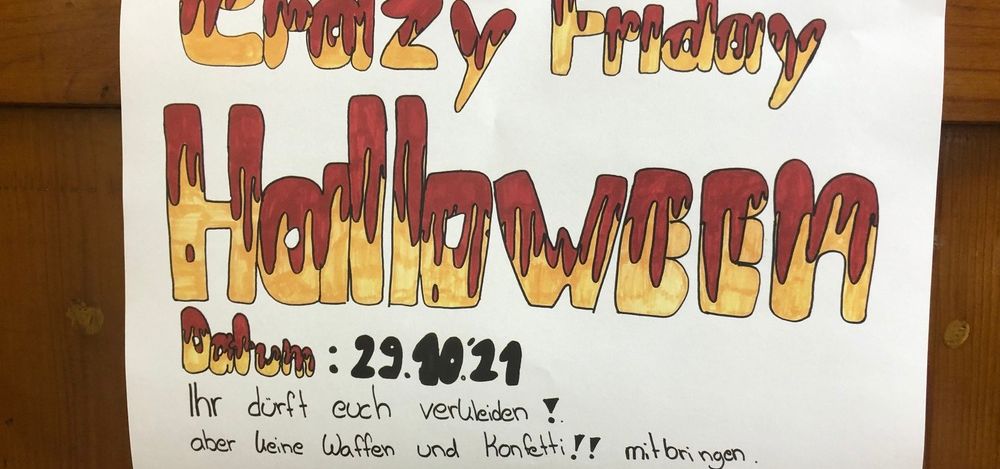 Crazy Friday
Halloween
Datum : 29.10.21
Ihr dürft euch verkleiden !.
aber keine Waffen und Konfetti!! mitbringen.